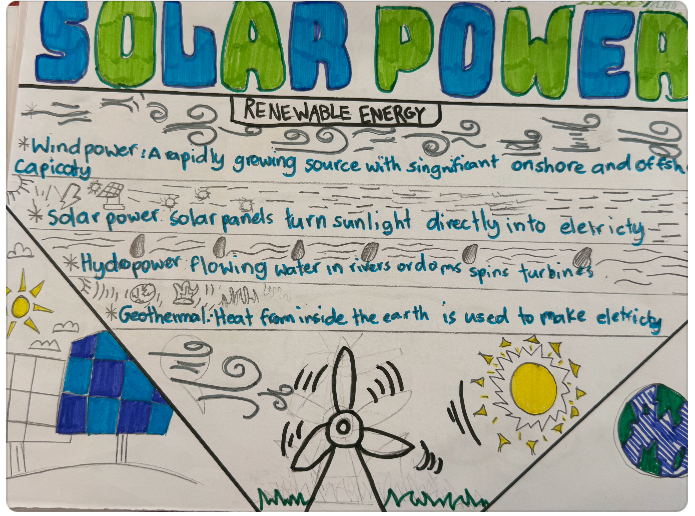 SOLAR POWER
RENEWABLE ENERGY
*Wind power: A rapidly growing source with singnificant onshore and offsh
capicaty
*Solar power: solar panels turn sunlight directly into eletricty
*Hydopower flowing water in rivers or doms spins turbines
*Geothermal: Heat from inside the earth is used to make eletricty